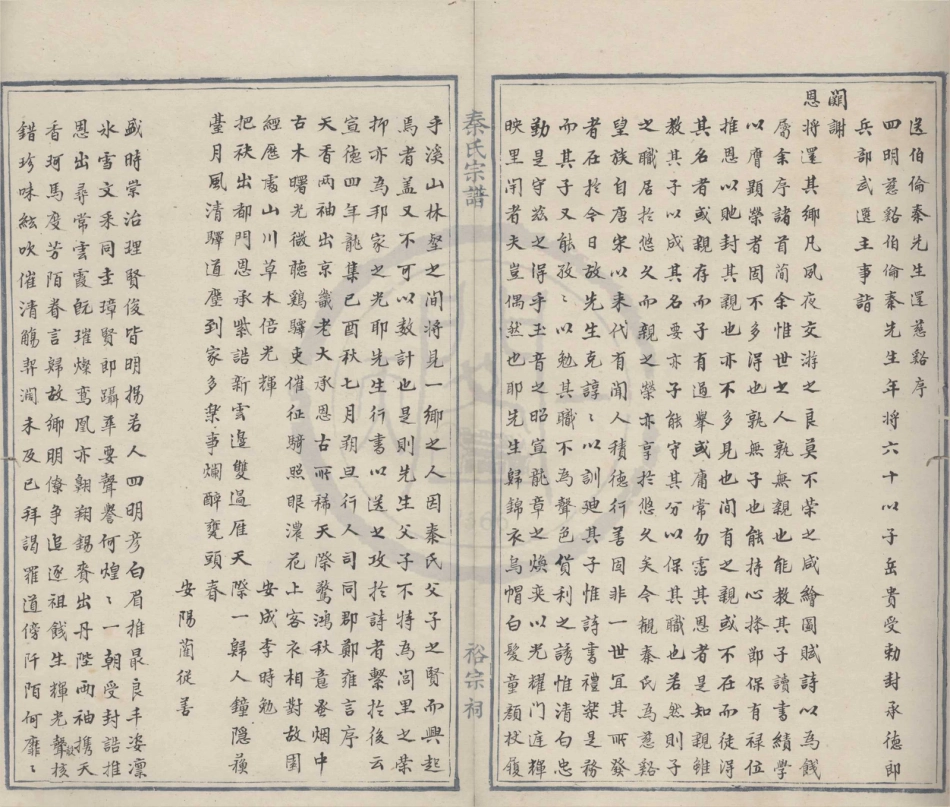 送伯倫秦先生還慈谿序
四明慈谿伯倫秦先生年將六十以子岳貴受勅封承德郎
兵部武選主事詣
闕謝
恩將還其鄉凡夙夜交游之良莫不榮之咸繪圖賦詩以為餞
屬余序諸首簡余惟世之人孰無親也能教其子讀書績學
以膺顯榮者固不多得也孰無子也能持心操節保有祿位
推恩以貤封其親也亦不多見也間有之親或不在而徒得
其名者或親存而子有過舉或庸常勿霑其恩者是知親雖
教其子以成其名要亦子能守其分以保其職也若然則子
之職居於悠久而親之榮亦享於悠久矣今觀秦氏為慈谿
望族自唐宋以來代有聞人積德行善固非一世宜其所發
者在於今日故先生克諄〻以訓廸其子惟詩書禮樂是務
而其子又能孜〻以勉其職不為聲色貨利之誘惟清白忠
勤是守茲之得乎玉音之昭宣龍章之煥奕以光耀門庭輝
映里閈者夫豈偶然也耶先生歸錦衣烏帽白髮童顏杖履
乎溪山林壑之間將見一鄉之人因秦氏父子之賢而興起
焉者蓋又不可以數計也是則先生父子不特為閭里之榮
抑亦為邦家之光耶先生行書以送之攻於詩者繫於後云
宣德四年龍集己酉秋七月朔旦行人司同郡鄭雍言序
天香兩袖出京畿老大承恩古所稀天際鶩鴻秋意蚤烟中
古木曙光微聽鷄驛吏催征騎照眼濃花上客衣相對故園
經歷處山川草木倍光輝
安成李時勉
把袂出都門恩承紫誥新雲邊雙過雁天際一歸人鐘隱蘋
臺月風清驛道塵到家多樂事爛醉甕頭春
安陽藺從善
盛時崇治理賢俊皆明揚若人四明彥白眉推最良丰姿凜
氷雪文采同圭璋賢郎躡華要聲譽何煌〻一朝受封誥推
恩出尋常雲霞旣璀燦鸞鳳亦翺翔錫賚出丹陛兩袖携天
香珂馬度芳陌眷言歸故鄉明僚争追逐祖餞生輝光聲核
錯珍味絃吹催清觴契濶未及已拜謁羅道傍阡陌何靡〻
秦氏宗譜
裕宗祠